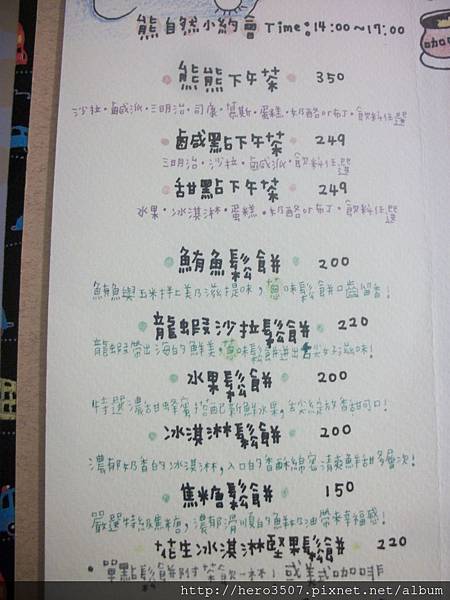 熊自然小約會 Time:14:00~17:00
咖啡
熊熊下午茶 350
沙拉·鹹派·三明治·司康·慕斯·蛋糕·奶酪or布丁·飲料任選
鹹點下午茶 249
三明治·沙拉·鹹派·飲料任選
甜點下午茶 249
水果·冰淇淋·蛋糕·奶酪or布丁·飲料任選
鮪魚鬆餅 200
鮪魚與玉米拌上美乃滋提味,蔥味鬆餅口齒留香!
龍蝦沙拉鬆餅 220
龍蝦帶出海的鮮美,蔥味鬆餅迸出舌尖好滋味!
水果鬆餅 200
特選濃甜蜂蜜搭配新鮮水果,舌尖綻放香甜可口!
冰淇淋鬆餅 200
濃郁奶香的冰淇淋,入口的香酥綿密清爽鮮甜多層次!
焦糖鬆餅 150
嚴選特級焦糖,濃郁滑順的鮮奶油帶來幸福感!
花生冰淇淋堅果鬆餅 220
·單點鬆餅附茶飲一杯!或美式咖啡
http://hero3507.pixnet.net/album